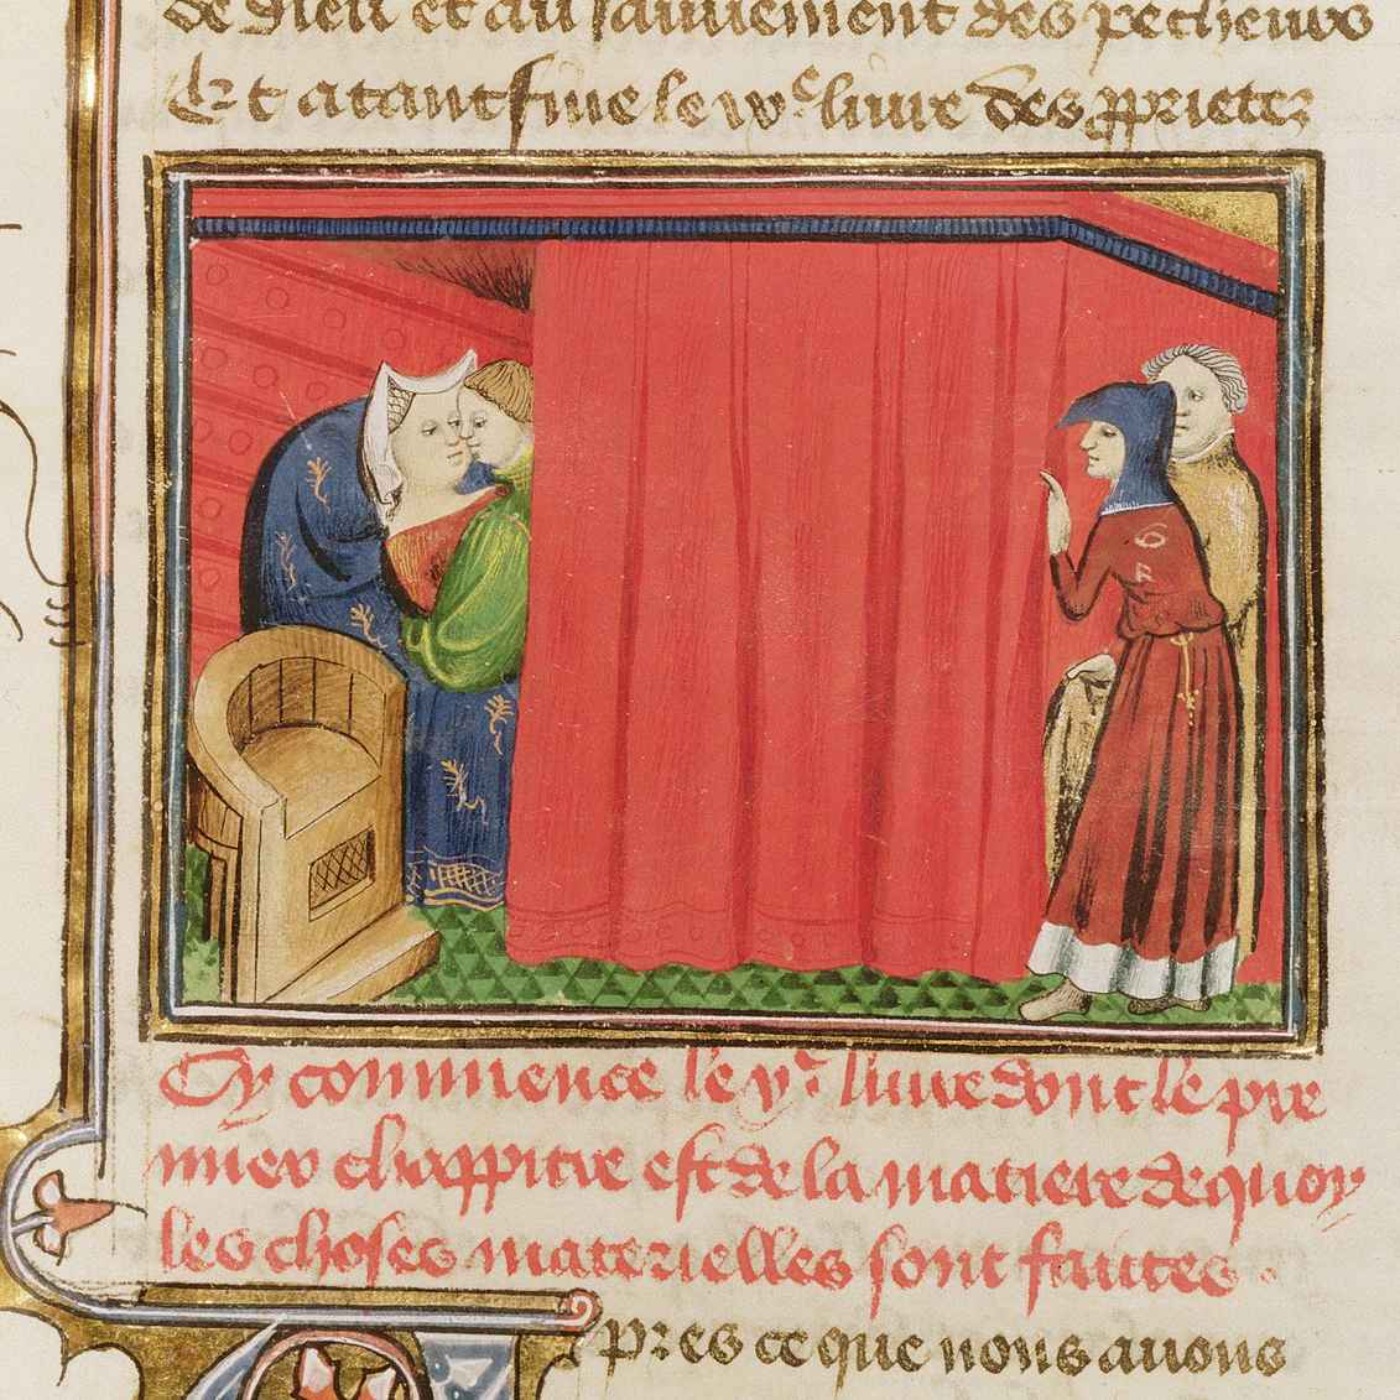 de dieu et au sauuement des pecheurs
Et atant fine le ix.e liure des pprietez
6
R
Cy commence le x.e liure dont le pre
mier chappitre est de la matiere de quoy
les choses materielles sont faittes.
pres ce que nous auons